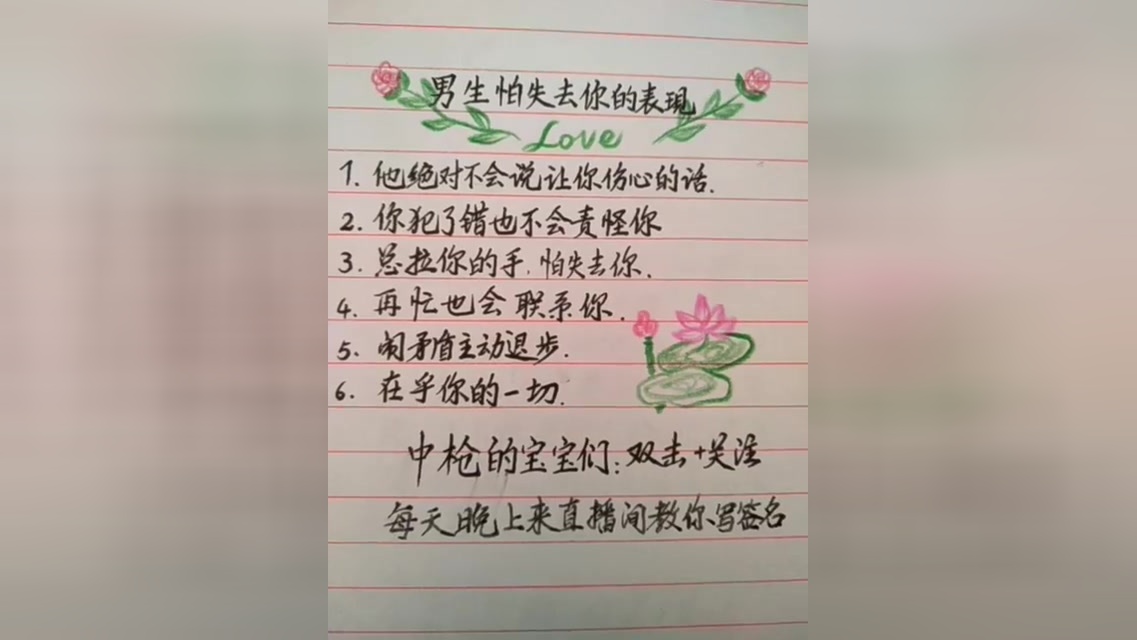 男生怕失去你的表现
Love
1. 他绝对不会说让你伤心的话.
2. 你犯了错也不会责怪你
3. 总拉你的手.怕失去你.
4. 再忙也会联系你.
5. 闹矛盾主动退步.
6. 在乎你的一切.
中枪的宝宝们:双击+关注
每天晚上来直播间教你写签名